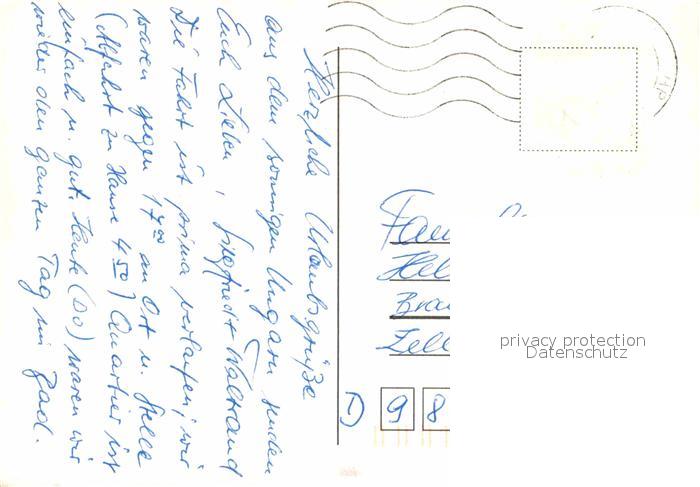 Herzliche Urlaubsgrüße
aus dem sonnigen Ungarn senden
Euch Lieben, Siegfried + Waltraud
Die Fahrt ist prima verlaufen, wir
waren gegen 17⁰⁰ an Ort u. Stelle
(Abfahrt zu Hause 4⁵⁰) Quartier ist
einfach u. gut. Heute (Do) waren wir
wieder den ganzen Tag im Bad.
Fam
Hel
Bra
Zell
privacy protection
Datenschutz
D 9 8